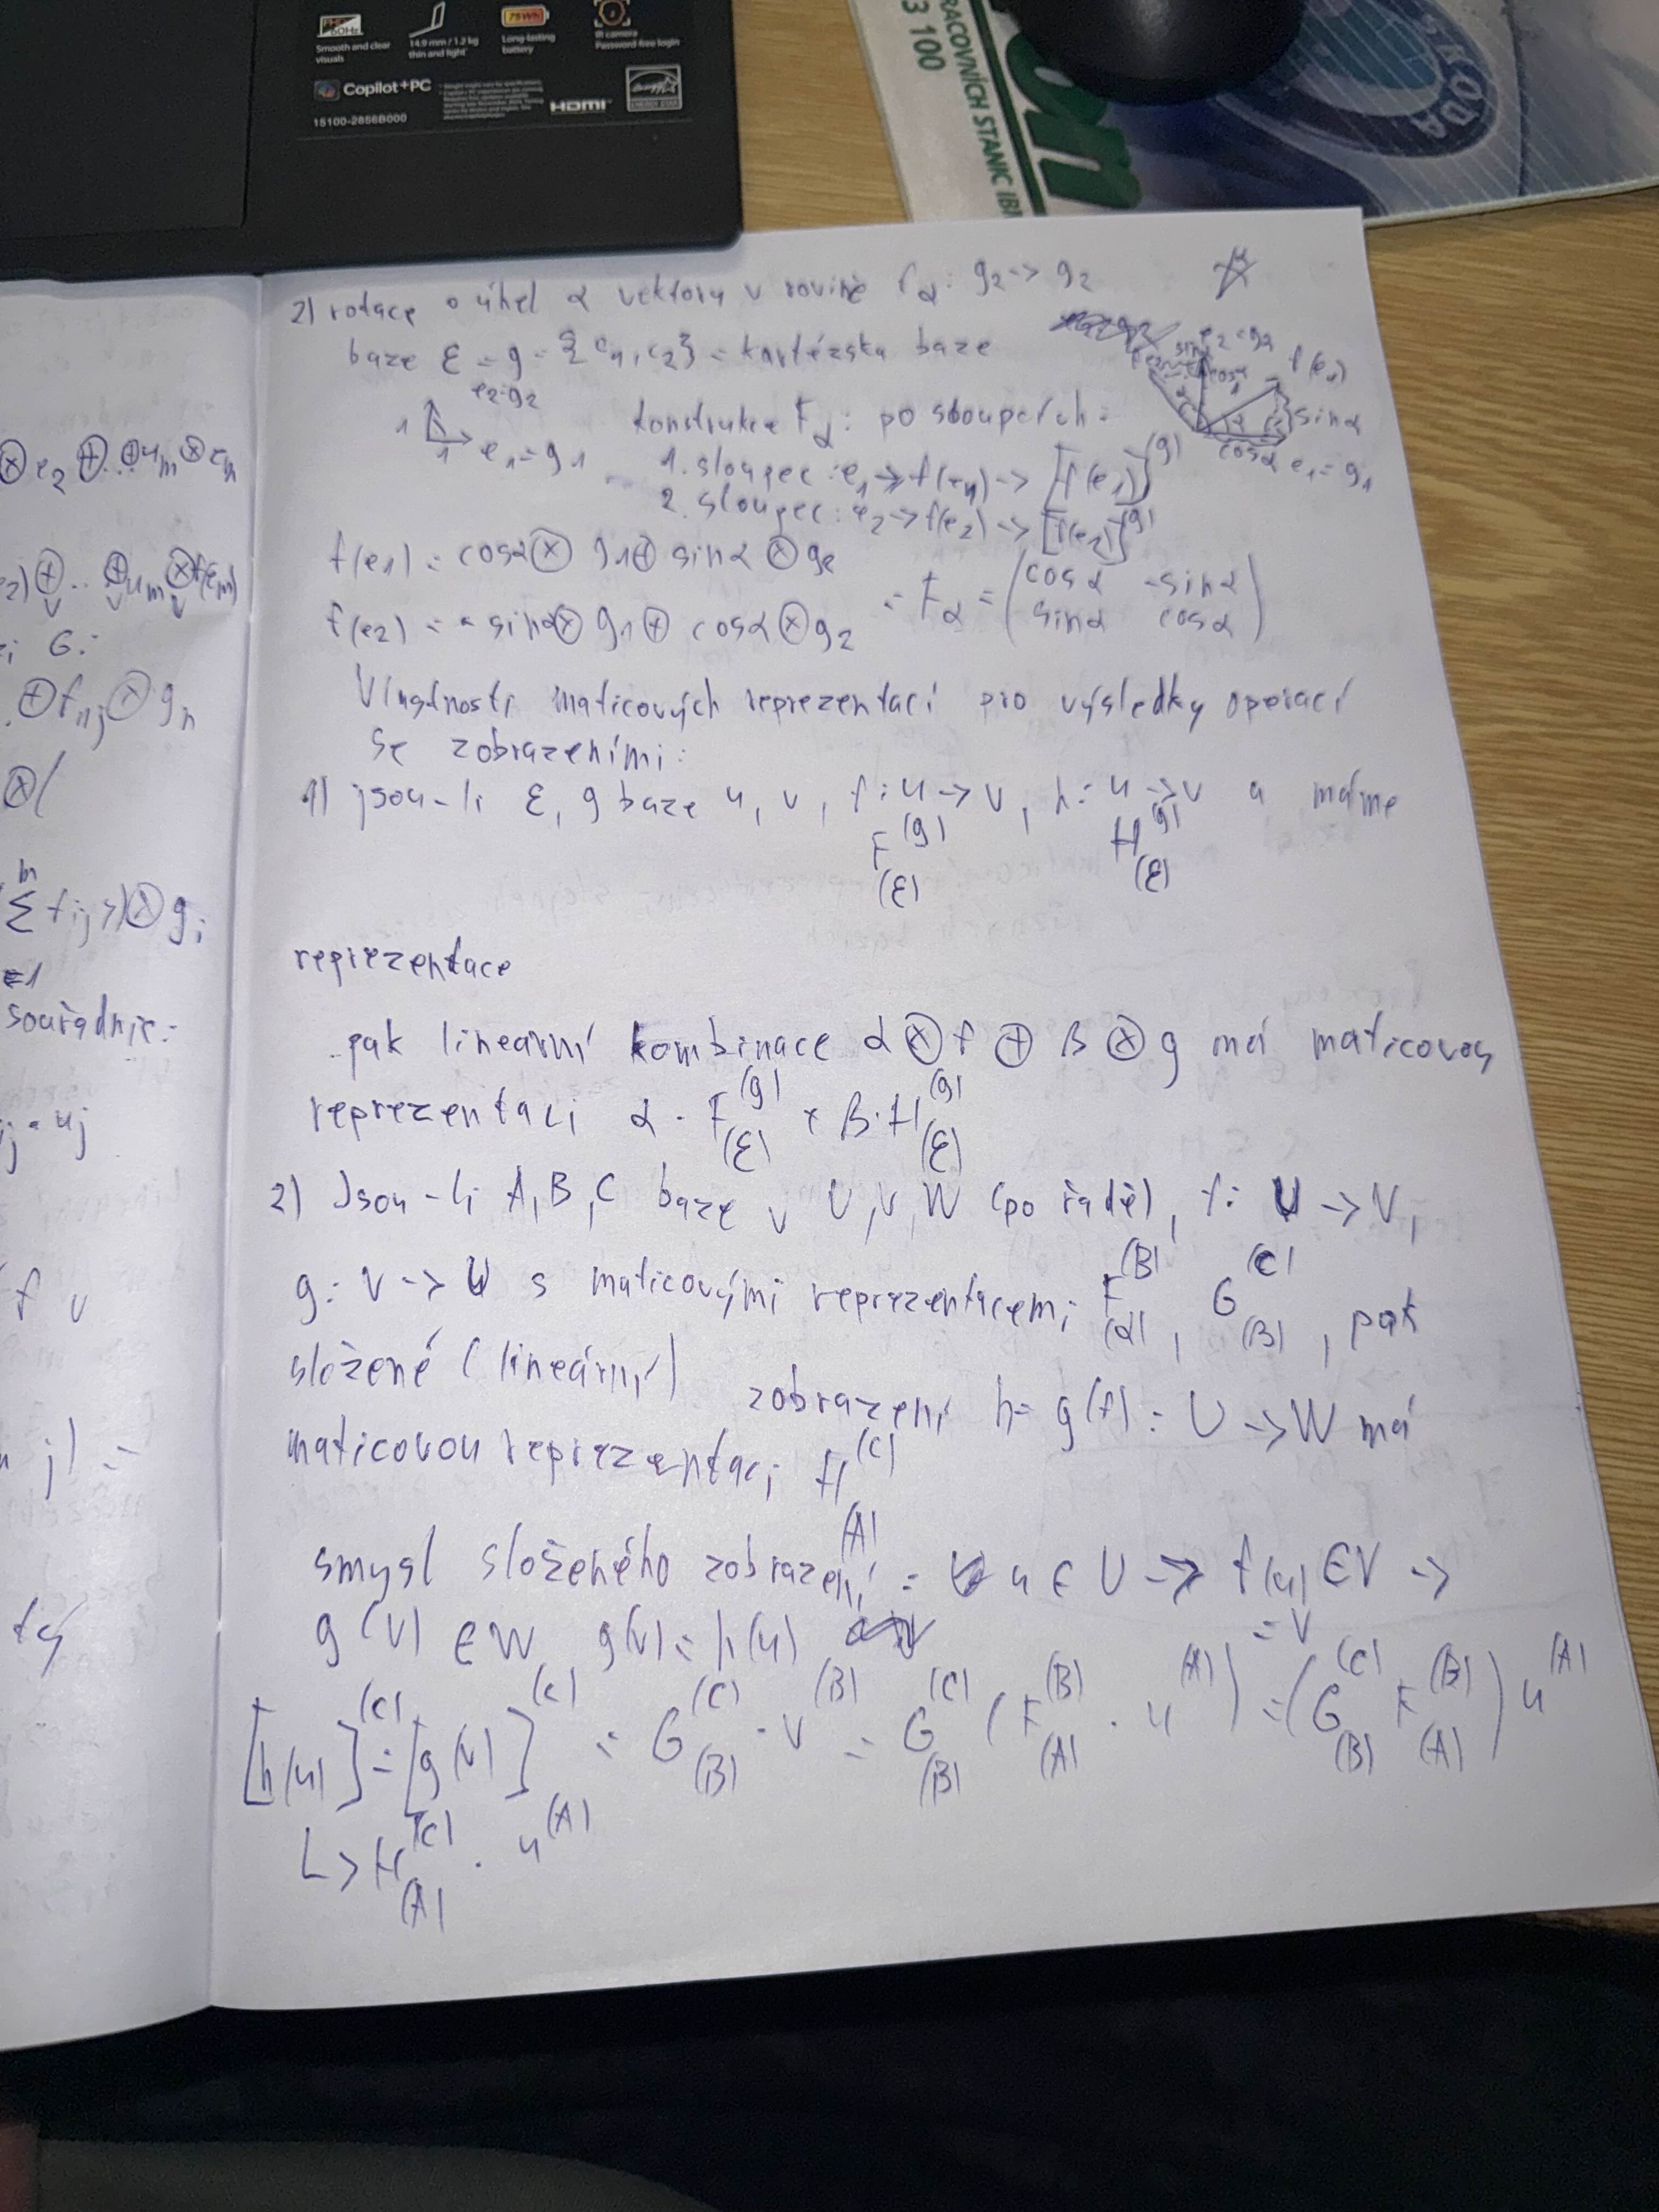 FHD 60Hz
Smooth and clear visuals
14.9 mm / 1.2 kg
thin and light
75Wh
Long-lasting battery
IR camera
Password-free login
Copilot+PC
HDMI
ENERGY STAR
15100-2856B000
RACOVNÍCH STANIC
3 100
2) rotace o úhel α vektoru v rovině f_α: g2 -> g2
baze Ɛ = g = {e1, e2} = kartézska baze
e2=g2
1
1 e1=g1
konstrukce F_α: po sloupcích:
1. sloupec: e1 -> f(e1) -> [f(e1)]^(g)
2. sloupec: e2 -> f(e2) -> [f(e2)]^(g)
e2=g2
f(e1)
sinα
cosα
e1=g1
f(e1) = cosα ⊗ g1 ⊕ sinα ⊗ g2
f(e2) = -sinα ⊗ g1 ⊕ cosα ⊗ g2
= F_α = (cosα -sinα
sinα cosα)
Vlastnosti maticových reprezentací pro výsledky operací
se zobrazeními:
1) jsou-li Ɛ, g baze u, v, f: u -> v, h: u -> v a máme
F^(g)_(Ɛ) H^(g)_(Ɛ)
reprezentace
pak lineární kombinace α ⊗ f ⊕ β ⊗ g má maticovou
reprezentaci α · F^(g)_(Ɛ) + β · H^(g)_(Ɛ)
2) Jsou-li A, B, C baze v U, V, W (po řadě), f: U -> V,
g: V -> W s maticovými reprezentacemi F^(B)_(α), G^(C)_(B), pak
složené (lineární) zobrazení h = g(f): U -> W má
maticovou reprezentaci H^(C)_(A)
smysl složeného zobrazení: u ∈ U -> f(u) ∈ V ->
= v
g(v) ∈ W g(v) = h(u)
[h(u)]^(C) = [g(v)]^(C) = G^(C)_(B) · v^(B) = G^(C)_(B) (F^(B)_(A) · u^(A)) = (G^(C)_(B) F^(B)_(A)) u^(A)
L> H^(C)_(A) · u^(A)
⊗ e2 ⊕ .. ⊕ um ⊗ em
e2) ⊕ .. ⊕ um ⊗ f(em)
i G:
⊕ fnj ⊗ gn
⊗ (
Σ fij) ⊗ gi
=1
souřadnic:
j · uj
f v
j) =